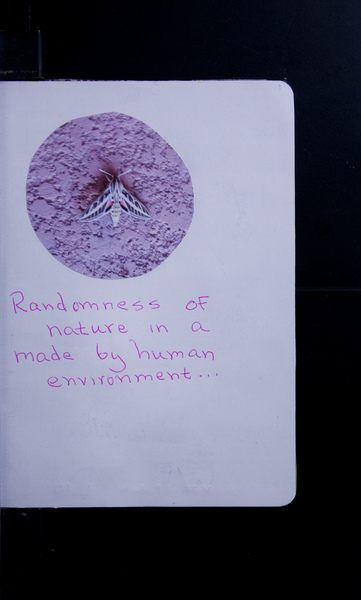 Randomness of
nature in a
made by human
environment...